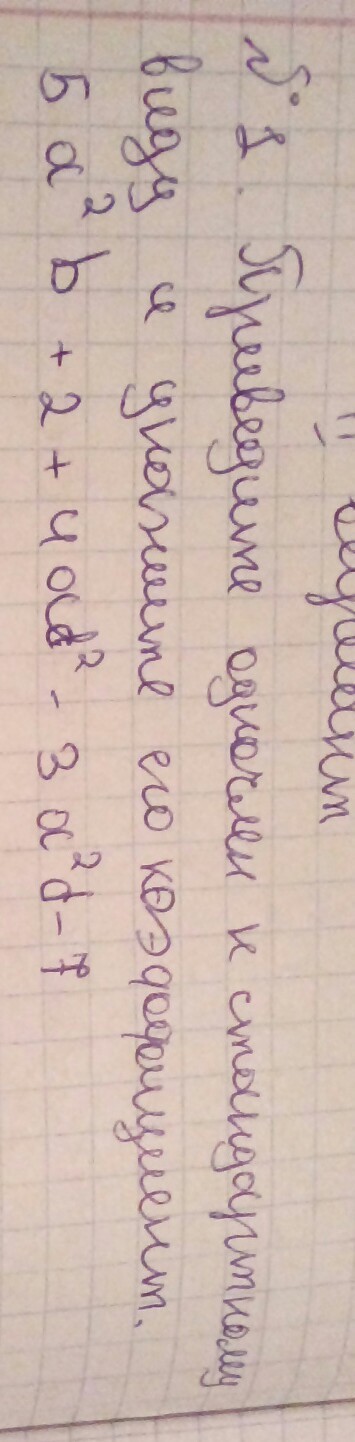 II вариант
№ 1. Приведите одночлен к стандартному
виду и укажите его коэффициент.
5a²b + 2 + 4ab² - 3a²b - 7